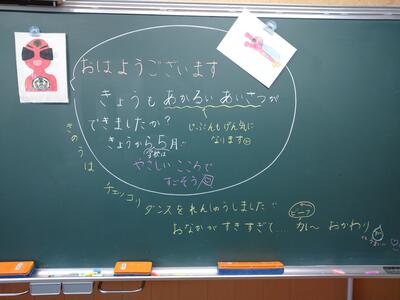 おはようございます
きょうも あかるい あいさつが
できましたか？
じぶんもげん気に
なります
きょうから5月
学校は
やさしい こころで
すごそう
きのうは
チェッコリ
ダンスをれんしゅうしました
おなかがすきすぎて....
ビーフ
カレー おかわり